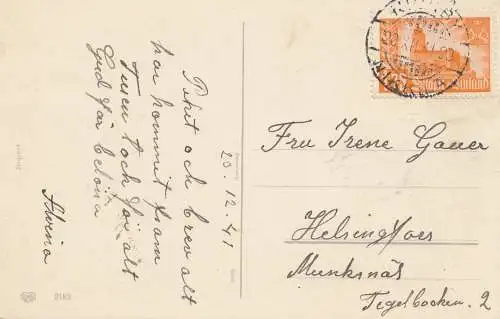 Paket och brev allt
har kommit fram
Tusen tack för allt
Gud får belöna
Alvina
20.12.41
Fru Irene Gauer
Helsingfors
Munksnäs
Tegelbacken. 2